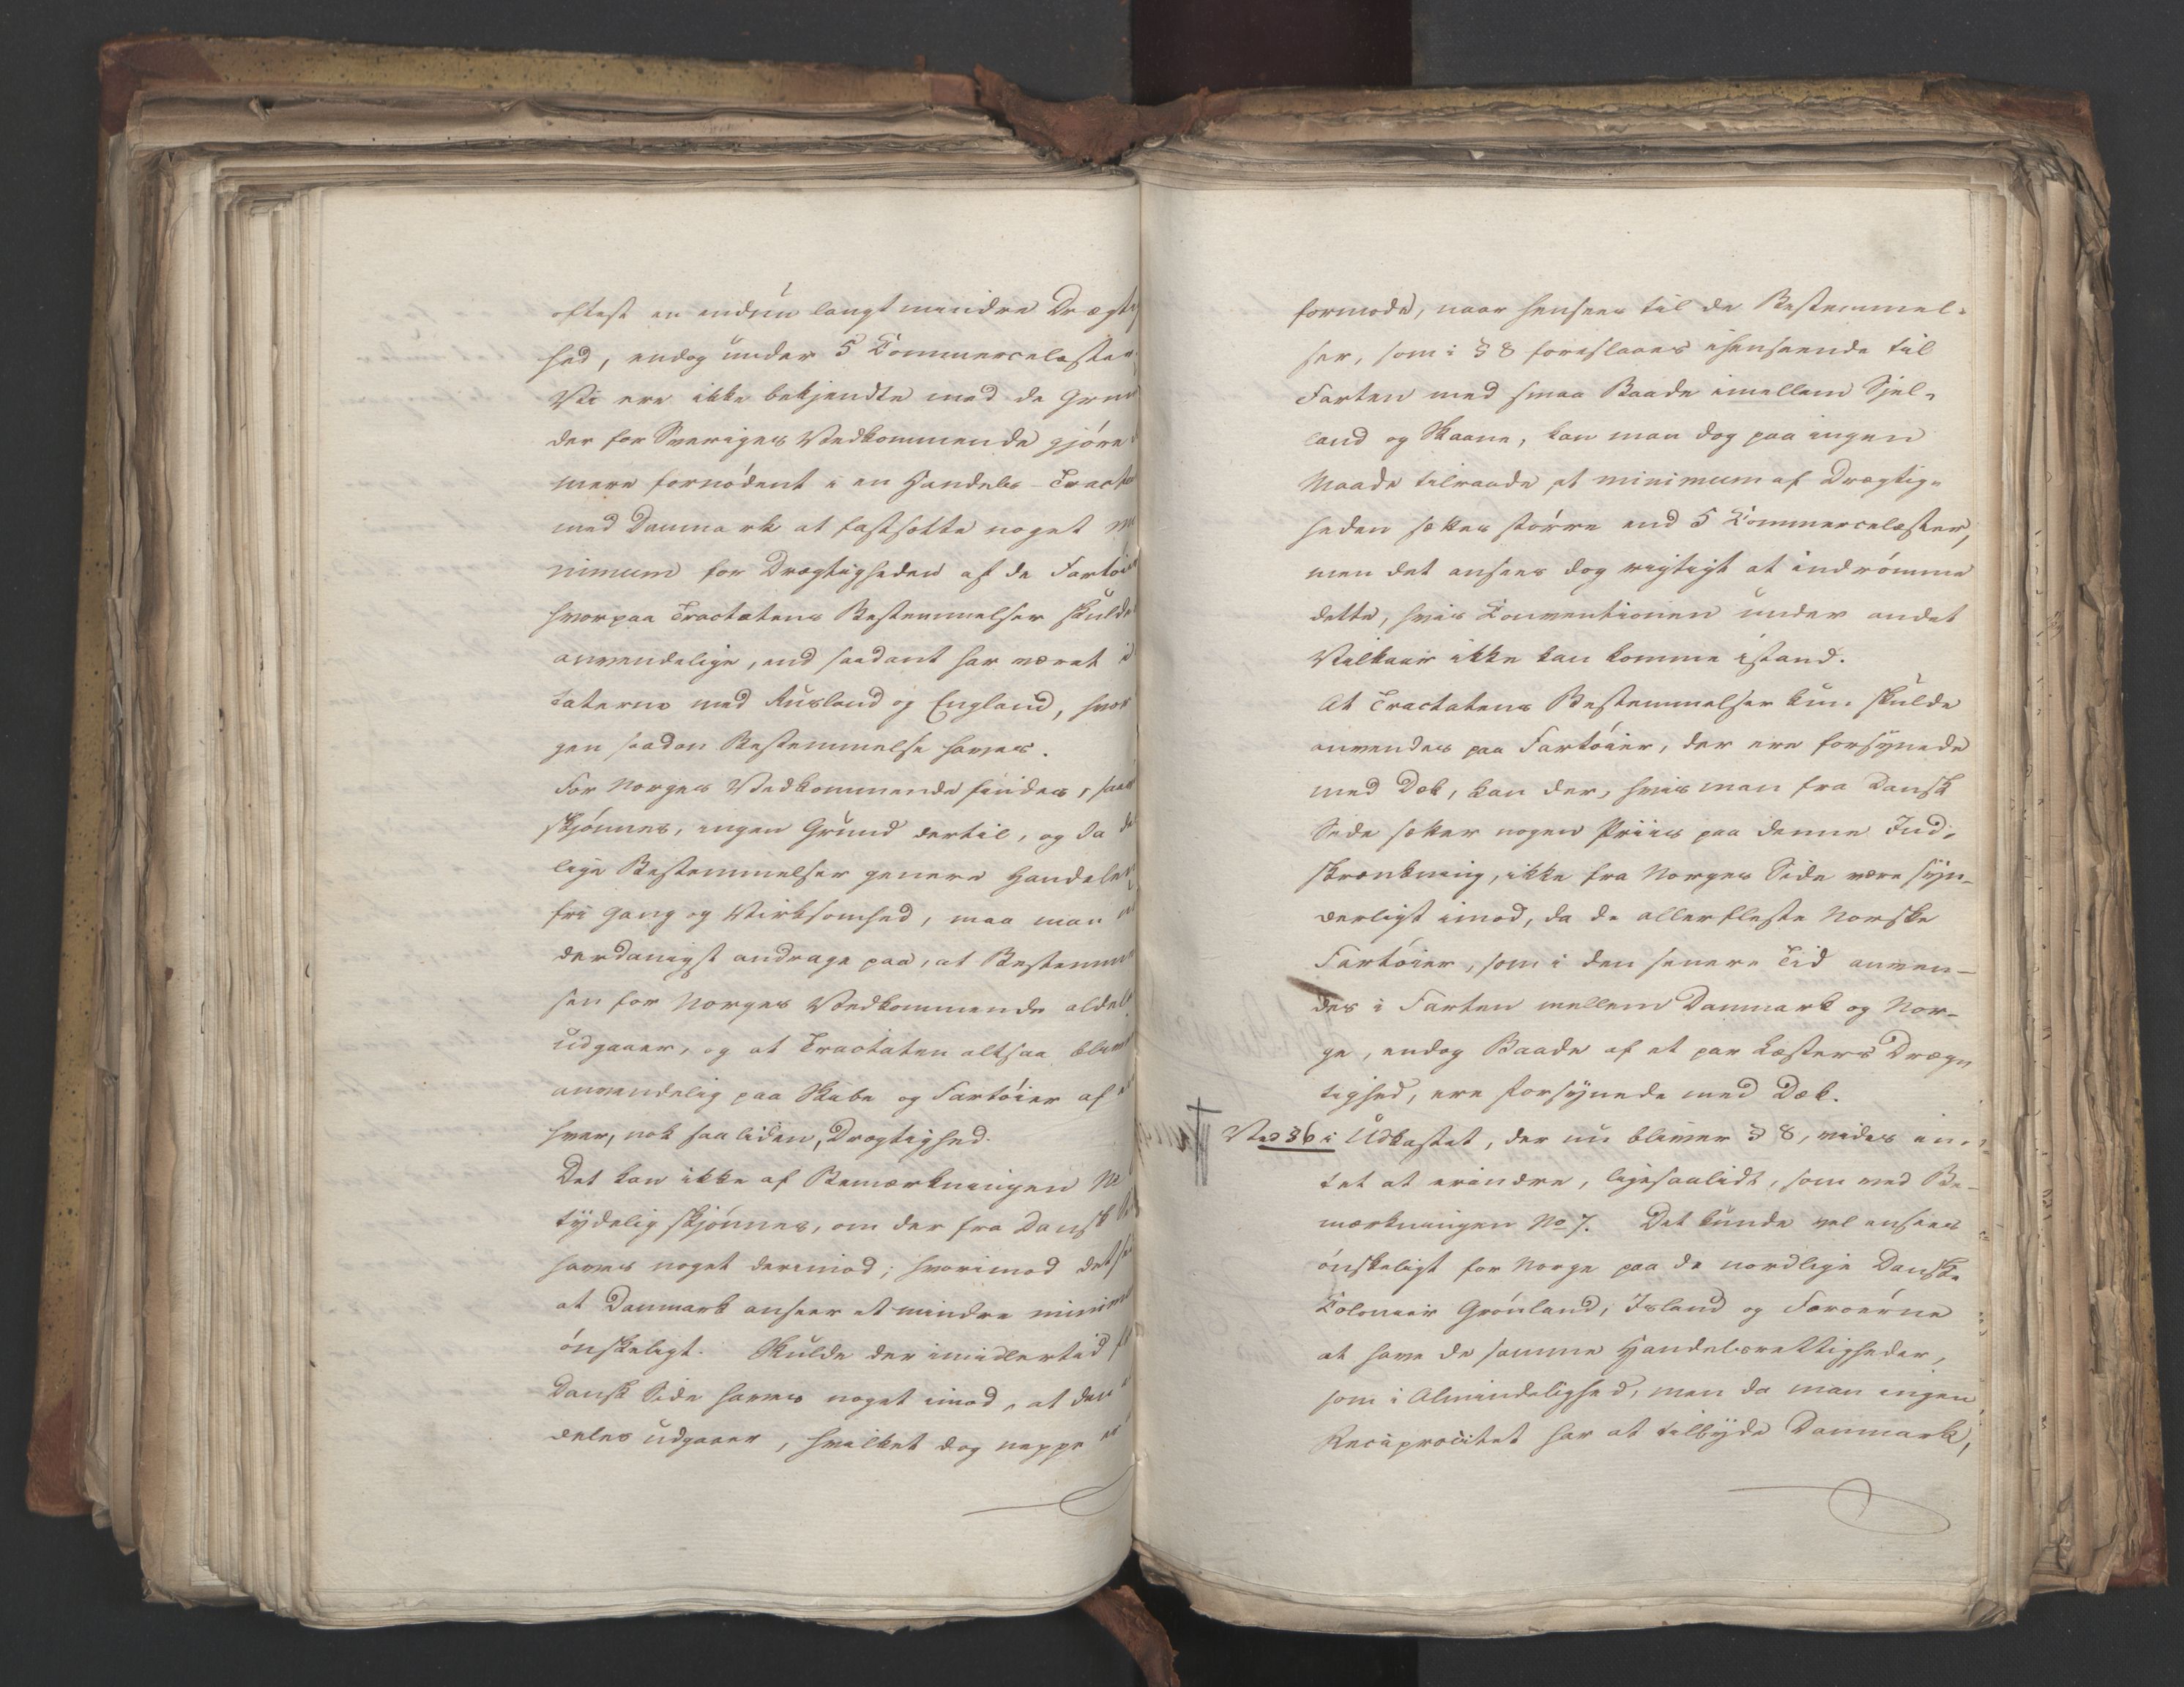 oftest en endnu langt mindre Drægtig
hed, endog under 5 Commercelæster
Vi ere ikke bekjendte med de Grun
der for Sveriges Vedkommende gjøre
mere fornødent i en Handels-Tracta
med Danmark at fastsætte noget mi
nimum for Drægtigheden af de Fartøi
hvorpaa Tractatens Bestemmelser skulde
anvendelige, end saadant har været i
taterne med Rusland og England, hvor
gen saadan Bestemmelse haves.
For Norges Vedkommende findes, saa
skjønnes, ingen Grund dertil, og da
lige Bestemmelser genere Handelen
fri Gang og Virksomhed, maa man
derdanigst andrage paa, at Bestemme
sen for Norges Vedkommende aldel
udgaaer, og at Tractaten altsaa bliver
anvendelig paa Skibe og Fartøier af
hver, nok saa liden, Drægtighed.
Det kan ikke af Bemærkningen No
tydelig skjønnes, om der fra Dansk
haves noget derimod; hvorimod det
at Danmark anseer et mindre minim
ønskeligt. Skulde der imidlertid
Dansk Side haves noget imod, at den
deles udgaaer, hvilket dog neppe
formode, naar hensees til de Bestemmel-
ser, som i § 8 foreslaaes ihenseende til
Farten med smaa Baade imellem Sjel-
land og Skaane, kan man dog paa ingen
Maade tilraade et minimum af Drægtig-
heden sættes større end 5 Commercelæster,
men det ansees dog rigtigt at indrømme
dette, hvis Conventionen under andet
Vilkaar ikke kan komme istand.
At Tractatens Bestemmelser kun skulde
anvendes paa Fartøier, der ere forsynede
med Dæk, kan der, hvis man fra Dansk
Side sætter nogen Priis paa denne Ind-
skrænkning, ikke fra Norges Side være syn-
derligt imod, da de allerfleste Norske
Fartøier, som i den senere Tid anven-
des i Farten mellem Danmark og Nor-
ge, endog Baade af et par Læsters Dræg-
tighed, ere forsynede med Dæk.
Ved § 6 i Udkastet, der nu bliver § 8, vides in-
tet at erindre, ligesaalidt, som ved Be-
mærkningen No 7. Det kunde vel ansees
ønskeligt for Norge paa de nordlige Danske
Colonier Grønland, Island og Færøerne
at have de samme Handelsrettigheder,
som i Almindelighed, men da man ingen
Reciprocitet har at tilbyde Danmark,